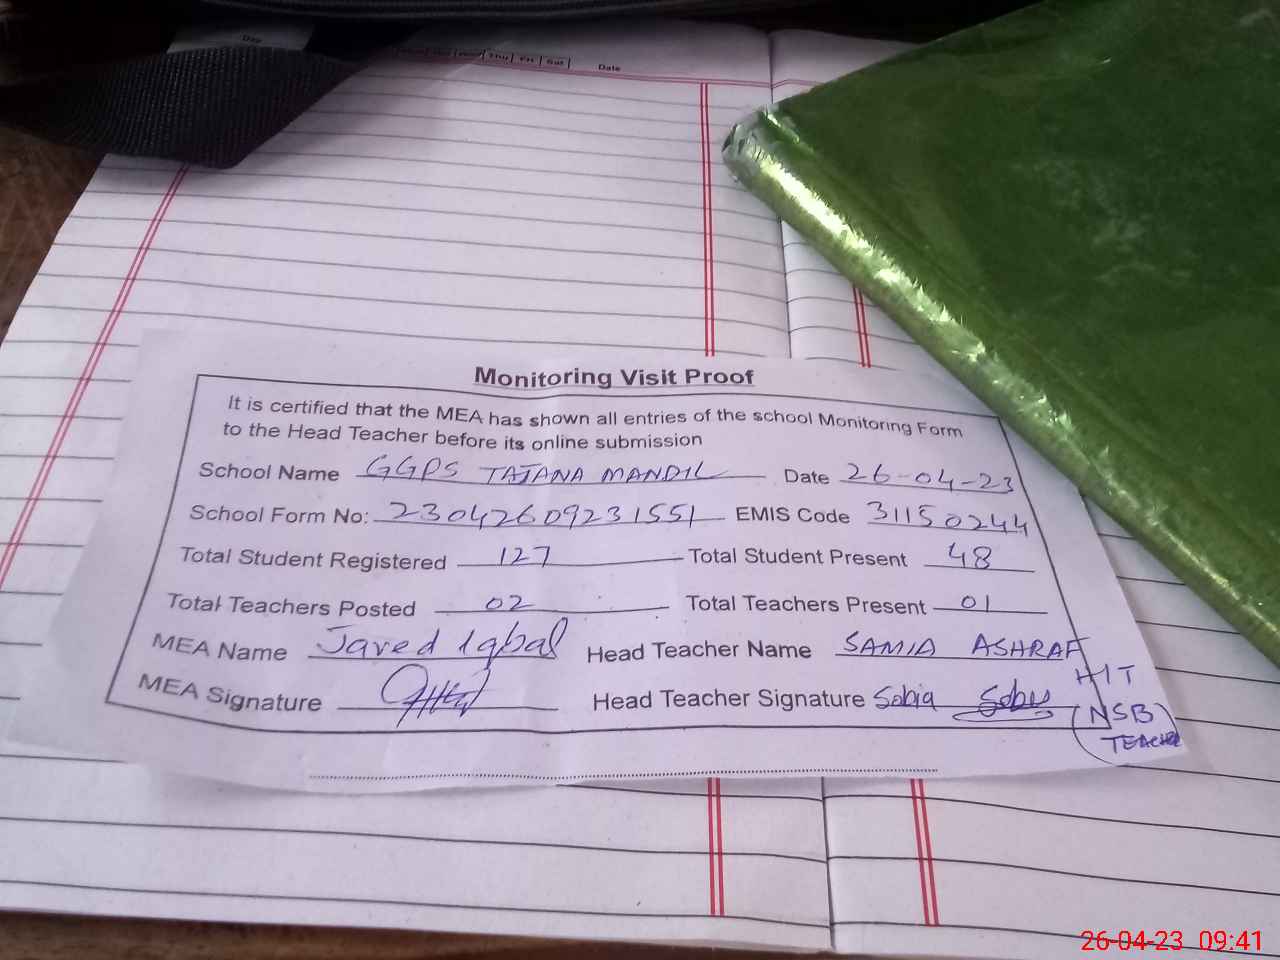 Day
Thu Fri Sat Date
Monitoring Visit Proof
It is certified that the MEA has shown all entries of the school Monitoring Form
to the Head Teacher before its online submission
School Name GGPS TAJANA MANDIL Date 26-04-23
School Form No: 23042609231551 EMIS Code 31150244
Total Student Registered 127 Total Student Present 48
Total Teachers Posted 02 Total Teachers Present 01
MEA Name Javed Iqbal Head Teacher Name SAMIA ASHRAF
H/T
MEA Signature Head Teacher Signature Sobia
(NSB)
TEACHER
26-04-23 09:41